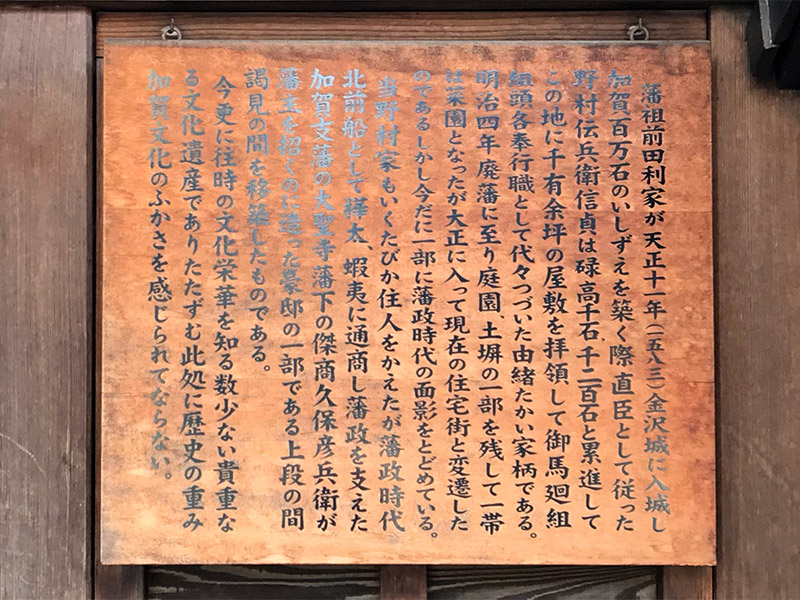 藩祖前田利家が天正十一年(一五八三)金沢城に入城し
加賀百万石のいしずえを築く際直臣として従った
野村伝兵衛信貞は禄高千石千二百石と累進して
この地に千有余坪の屋敷を拝領して御馬廻組
組頭各奉行職として代々つづいた由緒たかい家柄である。
明治四年廃藩に至り庭園、土塀の一部を残して一帯
は菜園となったが大正に入って現在の住宅街と変遷した
のであるしかし今だに一部に藩政時代の面影をとどめている。
当野村家もいくたびか住人をかえたが藩政時代
北前船として樺太、蝦夷に通商し藩政を支えた
加賀支藩の大聖寺藩下の傑商久保彦兵衛が
藩主を招くのに造った豪邸の一部である上段の間
謁見の間を移築したものである。
今更に往時の文化栄華を知る数少ない貴重な
る文化遺産でありたたずむ此処に歴史の重み
加賀文化のふかさを感じられてならない。